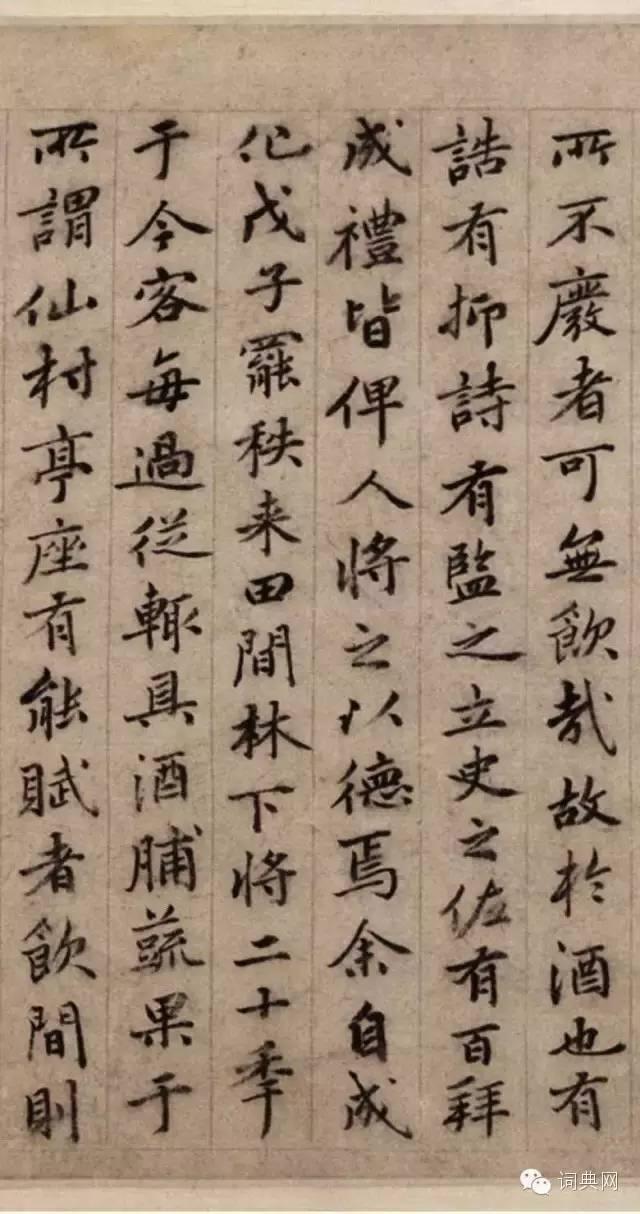 所不廢者可無飲哉故於酒也有
誥有抑詩有監之立史之佐有百拜
成禮皆俾人將之以德焉余自成
化戊子罷秩来田間林下將二十季
于今客每過從輒具酒脯蔬果于
所謂仙村亭座有能賦者飲間則
词典网